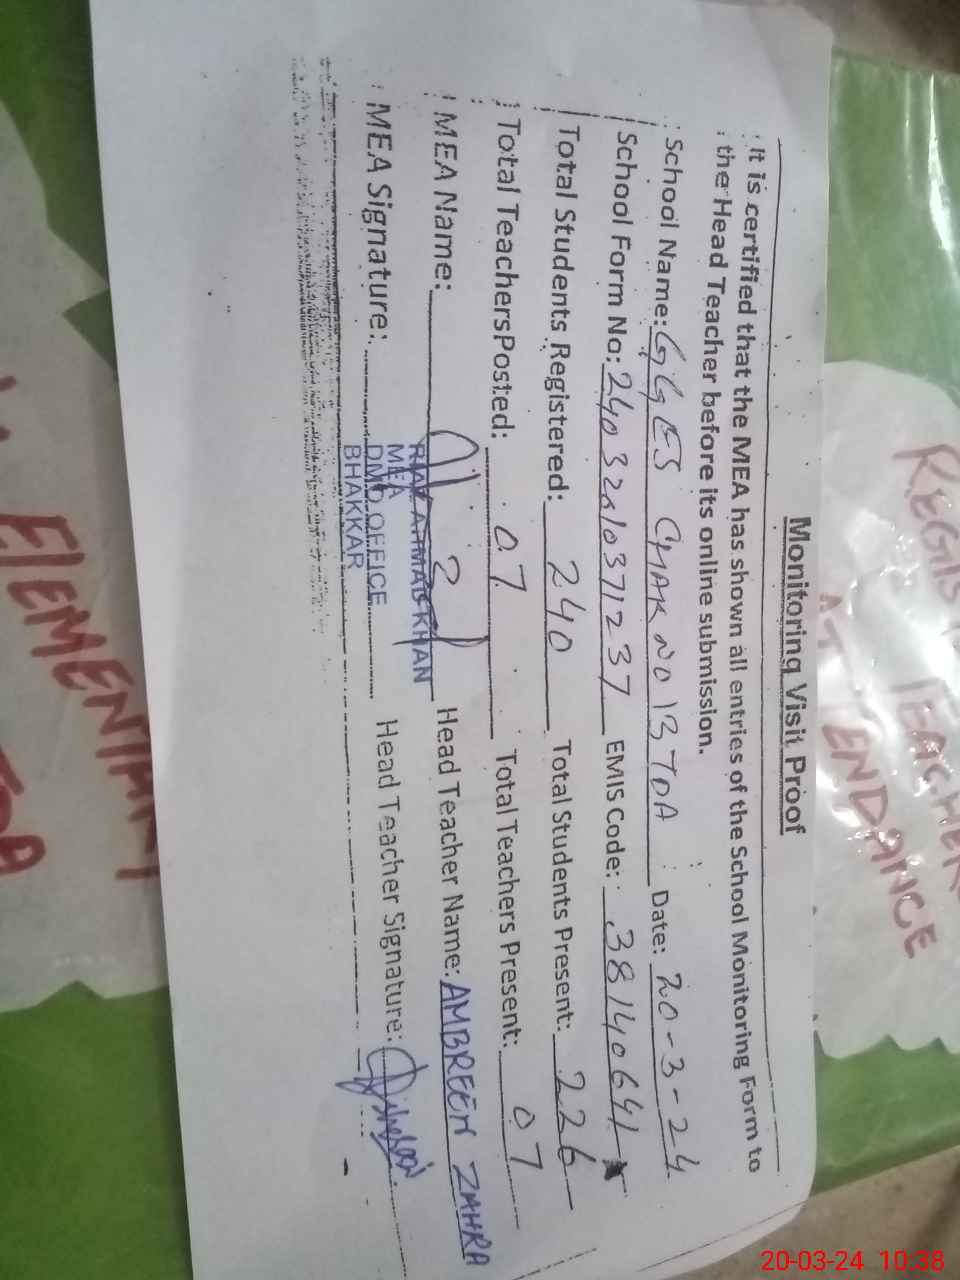 Monitoring Visit Proof
It is certified that the MEA has shown all entries of the School Monitoring Form to
the Head Teacher before its online submission.
School Name: GGES CHAK NO 13 TDA Date: 20-3-24
School Form No: EMIS Code: 38140641
Total Students Registered: 240 Total Students Present: 226
Total Teachers Posted: 07 Total Teachers Present: 07
MEA Name: Head Teacher Name: AMBREEN ZAHRA
MEA Signature: Head Teacher Signature:
RIAZ AHMAD KHAN
MEA
DMO OFFICE
BHAKKAR
TEACHER
ATTENDANCE
ElEMENTARY
TDA
20-03-24 10:38